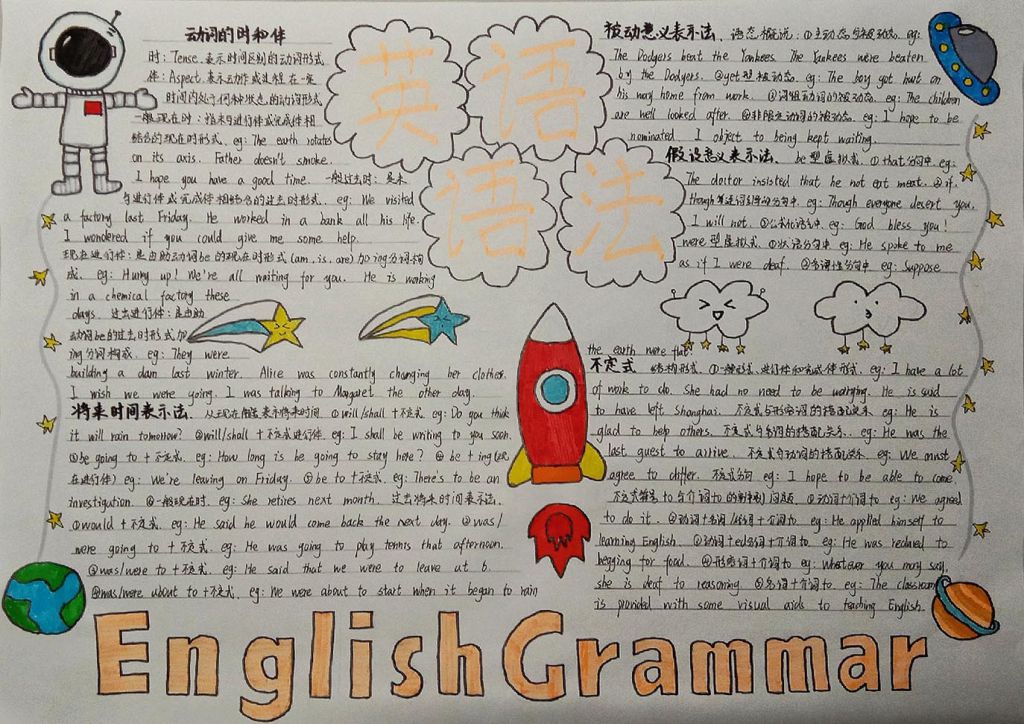 动词的时和体
时：Tense. 表示时间区别的动词形式
体：Aspect. 表示动作或过程在一定
时间内处于何种状态的动词形式
一般现在时：指未与进行体或完成体相
结合的现在时形式. eg: The earth rotates
on its axis. Father doesn't smoke.
I hope you have a good time. 一般过去时：是未
与进行体或完成体相结合的过去时形式. eg: We visited
a factory last Friday. He worked in a bank all his life.
I wondered if you could give me some help.
现在进行体：是由助动词be的现在时形式(am, is, are)加ing分词构
成. eg: Hurry up! We're all waiting for you. He is working
in a chemical factory these
days. 过去进行体：是由助
动词be的过去时形式加
ing分词构成. eg: They were
building a dam last winter. Alice was constantly changing her clothes.
I wish we were going. I was talking to Margaret the other day.
将来时间表示法. 从现在角度表示将来时间. ①will/shall+不定式. eg: Do you think
it will rain tomorrow? ②will/shall+不定式进行体. eg: I shall be writing to you soon.
③be going to+不定式. eg: How long is he going to stay here? ④be+ing(现
在进行体) eg: We're leaving on Friday. ⑤be to+不定式. eg: There's to be an
investigation. ⑥一般现在时. eg: She retires next month. 过去将来时间表示法.
①would+不定式. eg: He said he would come back the next day. ②was/
were going to+不定式. eg: He was going to play tennis that afternoon.
③was/were to+不定式. eg: He said that we were to leave at 6.
④was/were about to+不定式. eg: We were about to start when it began to rain
英语
语法
被动意义表示法. 语态概说：①主动态与被动态. eg:
The Dodgers beat the Yankees. The Yankees were beaten
by the Dodgers. ②get型被动态. eg: The boy got hurt on
his way home from work. ③词组动词的被动态. eg: The children
are well looked after. ④非限定动词的被动态. eg: I hope to be
nominated. I object to being kept waiting.
假设意义表示法. be型虚拟式. ①that分句中. eg:
The doctor insisted that he not eat meat. ②if,
though eg: Though everyone desert you,
I will not. ③公式化语句中. eg: God bless you!
were型虚拟式. ①状语分句中 eg: He spoke to me
as if I were deaf. ②名词性分句中 eg: Suppose
the earth were flat.
不定式 结构形式. ①一般形式、进行体和完成体形式. eg: I have a lot
of work to do. She had no need to be worrying. He is said
to have left Shanghai. 不定式与形容词的搭配关系. eg: He is
glad to help others. 不定式与名词的搭配关系. eg: He was the
last guest to arrive. 不定式与动词的搭配关系. eg: We must
agree to differ. 不定式分句 eg: I hope to be able to come.
不定式符号to与介词to的辨别问题 ①动词+介词to eg: We agreed
to do it. ②动词+名词/代词+介词to eg: He applied himself to
learning English. ③动词+ed分词+介词to. eg: He was reduced to
begging for food. ④形容词+介词to eg: Whatever you may say,
she is deaf to reasoning. ⑤名词+介词to. eg: The classroom
is provided with some visual aids to teaching English.
English Grammar